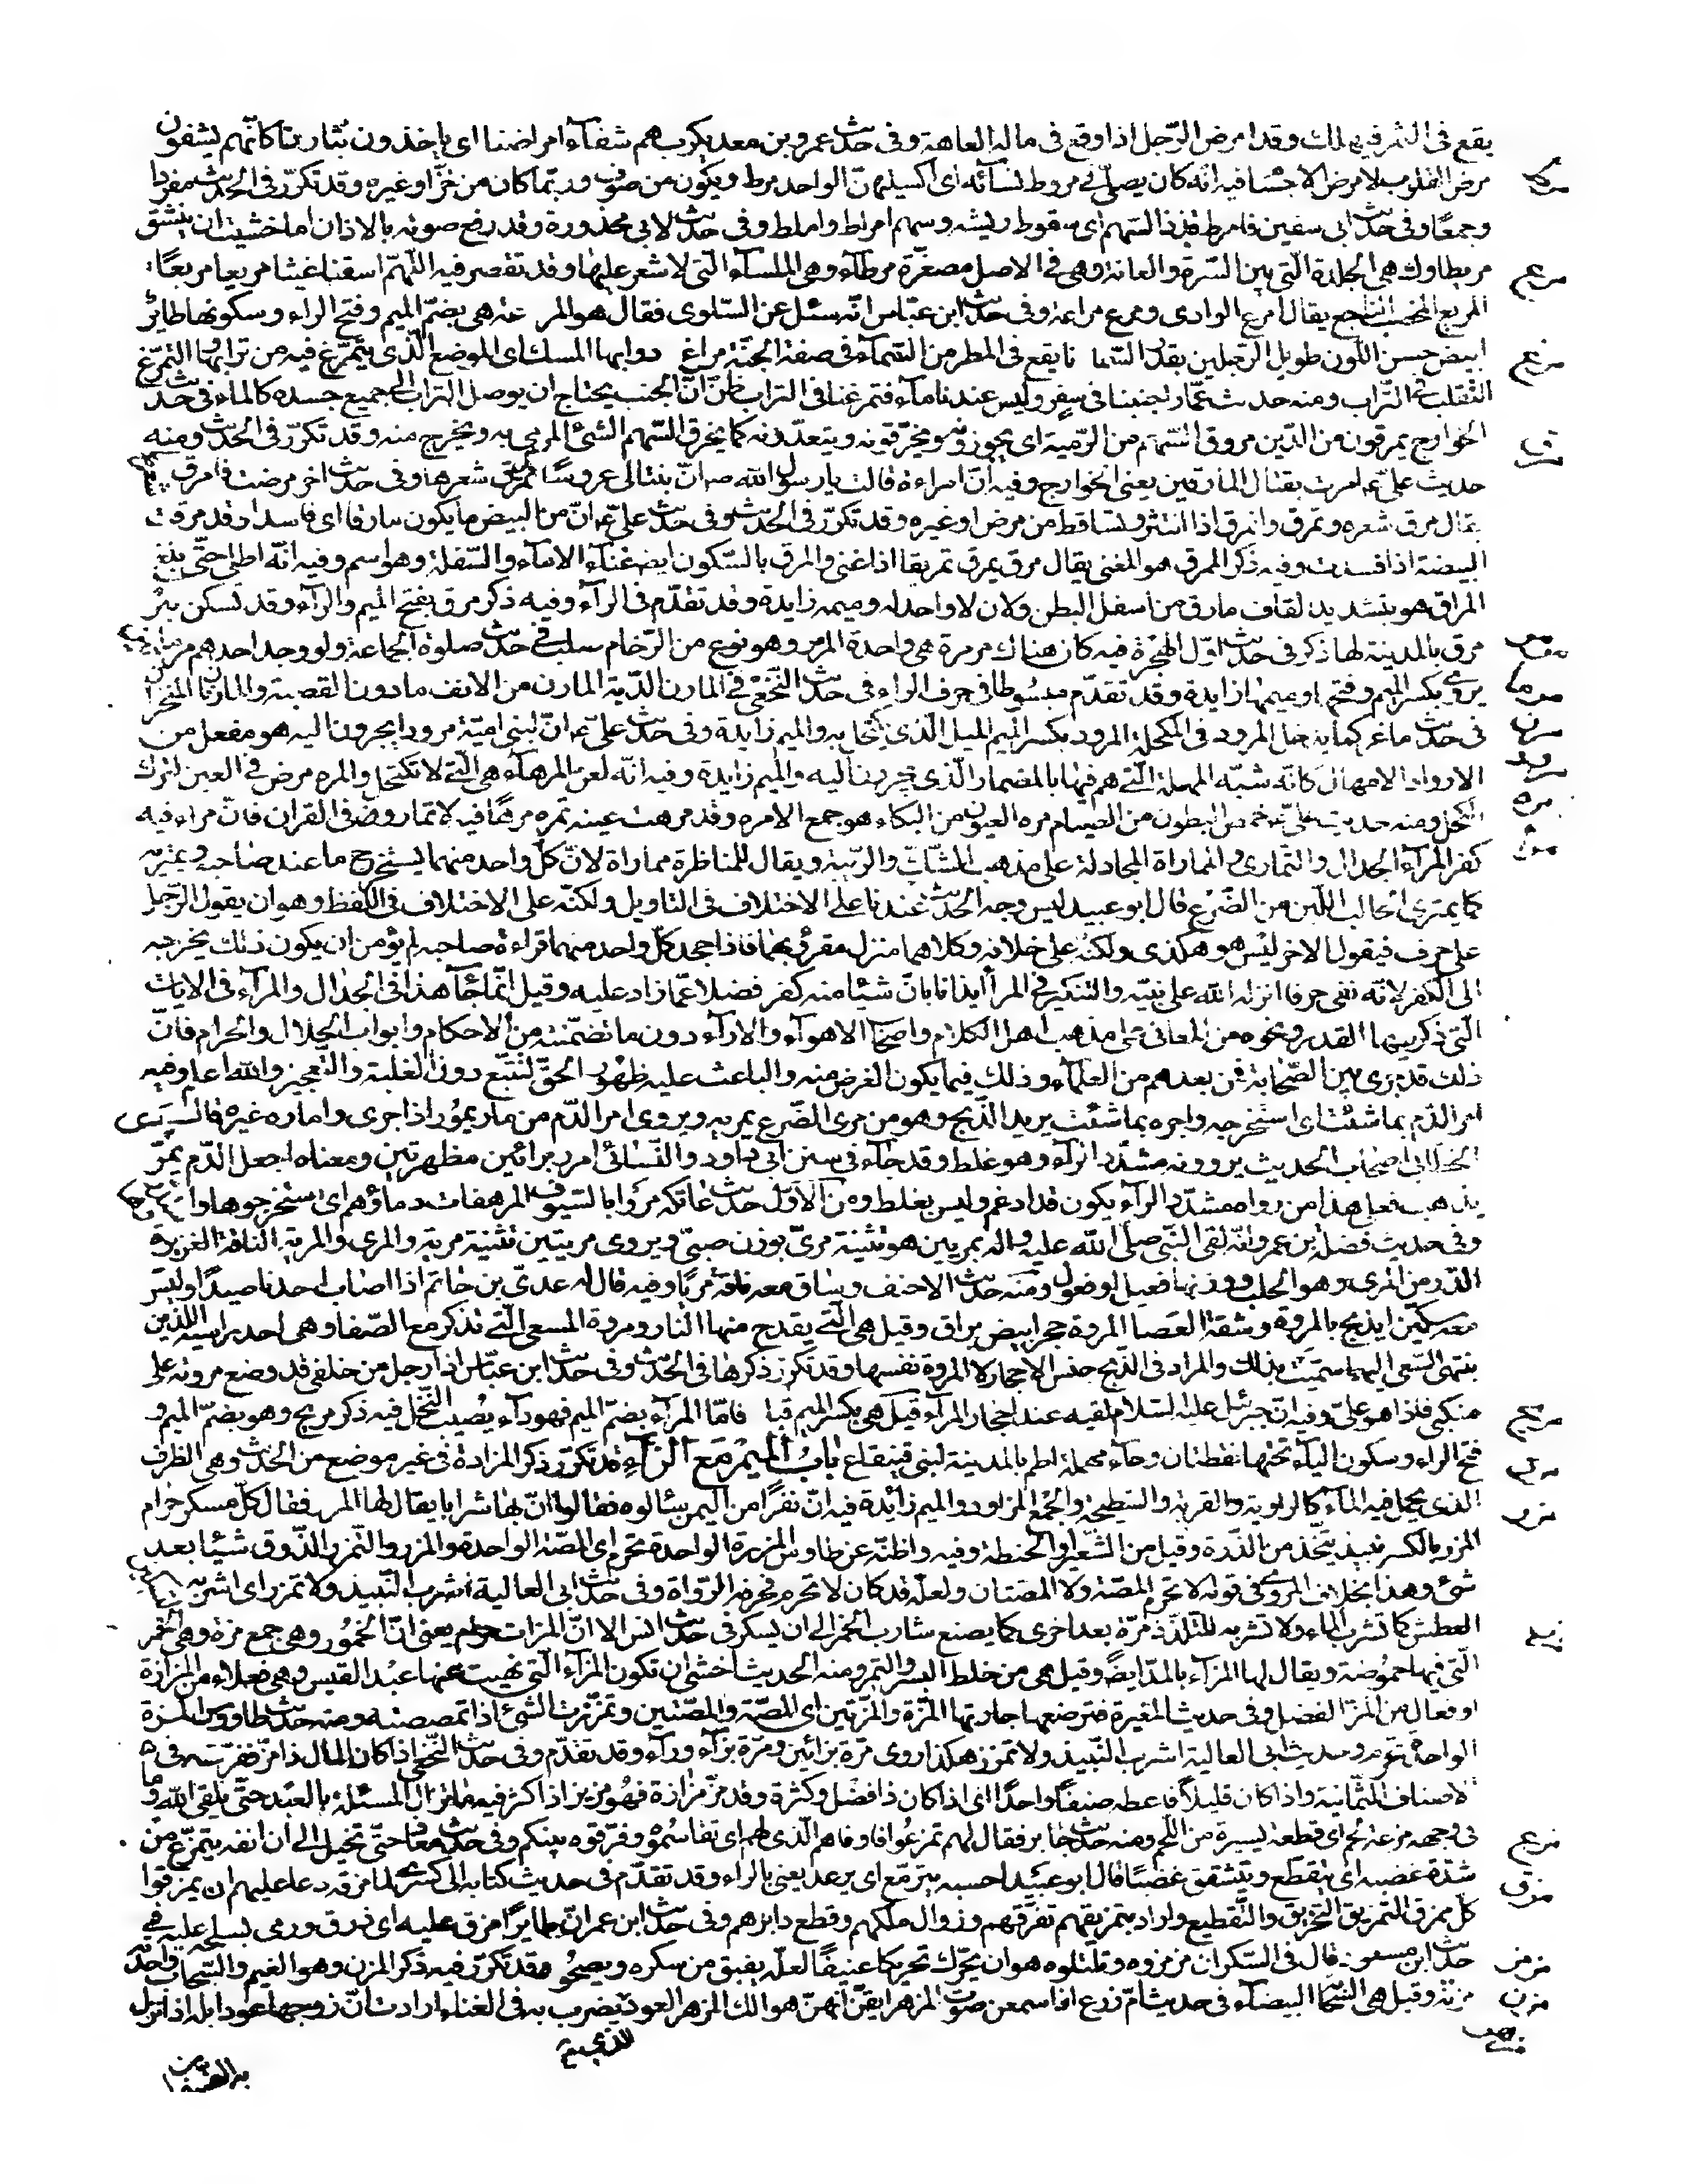 يقع فى الثمر فيهلك وقد امرض الرّجل اذا وقع فى ماله العاهة وفى حدث عمرو بن معد يكرب هم شفآء امراضنا اى ياخذون بثارنا كانّهم يشفون
مرض القلوب لا مرض الاجسا فيه انه كان يصلّى فى مروط نسآئه اى اكسيتهنّ الواحد مرط ويكون من صوف وربّما كان من خزّ او غيره وقد تكرّر فى الحدث مفردا
مرط
وجمعًا وفى حدث ابى سفين فامرط قذذ السّهم اى سقوط ريشه وسهم امرط واملط وفى حدث لابى محذورة وقد رفع صوته بالاذان اما خشيت ان ينشق
مريطاوك هى الجلدة الّتى بين السّرة والعانة وهى فى الاصل مصغّرة مرطآء وهى الملسآء الّتى لا شعر عليها وقد تقصر فيه اللّهمّ اسقنا غيثا مريعا مربعًا
مرع
المريع المخصب الناجع يقال امرع الوادى ومرع مراعة وفى حدث ابن عبّاس انّه سئل عن السّلوى فقال هو المرعة هى بضمّ الميم وفتح الراء وسكونها طاير
ابيض حسن اللّون طويل الرّجلين بقدر السّما نا يقع فى المطر من السّمآء فى صفة الجنّة مراغ دوابها المسك اى الموضع الّذى يتمرّغ فيه من ترابها والتمرّغ
مرغ
التّقلب فى التّراب ومنه حديث عمّار اجنبنا فى سفر وليس عندنا مآء فتمرغنا فى التراب ظنّ انّ الجنب يحتاج ان يوصل التراب الى جميع جسده كالماء فى حدث
الخوارج يمرقون من الدّين مروق السّهم من الرّمية اى يجوزونه ويخرقونه ويتعدّونه كما يخرق السّهم الشئ المرمى به ويخرج منه وقد تكرّر فى الحدث ومنه
مرق
حديث علىّ ع امرت بقتال المارقين يعنى الخوارج وفيه انّ امراءة قالت يا رسول الله ص انّ بنتا لى عروسًا تمرّق شعرها وفى حدث اخر مرضت فامرق
يقال مرق شعره وتمرق وانمرق اذا انتثر وتساقط من مرض او غيره وقد تكرّر فى الحدث وفى حدث علىّ ع انّ من البيض ما يكون مارقا اى فاسدا وقد مرقت
البيضة اذا فسدت وفيه ذكر الممرق هو المغنى يقال مرق يمرق تمريقا اذا غنى والمرق بالسّكون ايض غنآء الامآء والسّفلة وهو اسم وفيه انّه اطلى حتّى بلغ
المراق هو بتشديد القاف مارق من اسفل البطن ولان لا واحد له وميمه زايدة وقد تقدّم فى الرآء وفيه ذكر مرق بفتح الميم والرآء وقد تسكن بئر
مرق بالمدينة لها ذكر فى حدث اوّل الهجرة فيه كان هناك مرمرة هى واحدة المرمر وهو نوع من الرّخام صلب فى حدث صلوة الجماعة ولو وجد احدهم مرماتين
يروى بكسر الميم وفتحها وميمها زايدة وقد تقدّم مبسوطا فى حرف الراء فى حدث النّخعى فى المارن الدّية المارن من الانف ما دون القصبة والمارنان المنخران
مرما
فى حدث ماعز كما يدخل المرود فى المكحلة المرود بكسر الميم الميل الّذى يكتحل به والميم زايدة وفى حدث علىّ ع انّ لبنى اميّة مرودا يجرون اليه هو مفعل من
مرن
الارواد الامهال كانّه شبّه المهلة الّتى هم فيها بالمضمار الّذى يجرون اليه والميم زايدة وفيه انّه لعن المرهآء هى الّتى لا تكتحل والمره مرض فى العين لترك
مرود
الكحل ومنه حديث علىّ ع خمص البطون من الصيام مره العيون من البكاء هو جمع الامره وقد مرهت عينه تمره مرهًا فيه لا تماروا فى القران فانّ مراء فيه
مره
كفر المرآء الجدال والتّمارى والمماراة المجادلة على مذهب الشّكّ والرّيبة ويقال للمناظرة مماراة لانّ كلّ واحد منهما يستخرج ما عند صاحبه ويمتريه
كما يمترى الحالب اللّبن من الضّرع قال ابو عبيد ليس وجه الحدث عندنا على الاختلاف فى التاويل ولكنّه على الاختلاف فى اللّفظ وهو ان يقول الرّجل
على حرف فيقول الاخر ليس هو هكذى ولكنّه على خلافه وكلاهما منزل مقرئ بهما فاذا جحد كلّ واحد منهما قراءة صاحبه لم يؤمن ان يكون ذلك يخرجه
الى الكفر لانّه نفى حرفا انزله الله على نبيّه والتنكير فى المرآ ايذانا بانّ شيئا منه كفر فضلا عمّا زاد عليه وقيل انّما جآء هذا فى الجدال والمرآء فى الايات
الّتى ذكر فيها القدر ونحوه من المعانى على مذهب اهل الكلام واصحاب الاهوآء والارآء دون ما تضمّنته من الاحكام وابواب الحلال والحرام فانّ
ذلك قد جرى بين الصّحابة فمن بعدهم من العلمآء وذلك فيما يكون الغرض منه والباعث عليه ظهور الحقّ لنتبع دون الغلبة والتّعجيز والله اعلم وفيه
امر الدّم بما شئت اى استخرجه واجره بما شئت يريد الذّبح وهو من مرى الضّرع يمريه ويروى امر الدّم من مار يمور اذا جرى واماره غيره قال
الخطّابى اصحاب الحديث يروونه مشدّد الرآء وهو غلط وقد جآء فى سنن ابى داود والنّسائى امرر برائين مظهرتين ومعناه اجعل الدّم يمرّ
يذهب فعلى هذا من رواه مشدّد الرآء يكون قد ادغم وليس بغلط ومن الاوّل حدث عاتكة مروا بالسّيوف المرهفات دماؤهم اى استخرجوها
وفى حديث فضلة بن عمرو انّه لقى النّبى صلّى الله عليه واله بمريين هو تثنية مرىّ بوزن صبىّ ويروى مريتين تثنية مرية والمرى والمرية الناقة الغزيرة
الدّر من المرى وهو الحلب ووزنها فعيل او فعول ومنه حدث الاحنف وساق معه ناقة مريّا وفيه قال له عدىّ بن حاتم اذا اصاب احدنا صيدًا وليس
معه سكّين ايذبح بالمروة وشقة العصا المروة حجر ابيض براق وقيل هى الّتى يقدح منها النار ومروة المسعى الّتى تذكر مع الصّفا وهى احد راسيه اللّذين
ينتهى السّعى اليهما سمّيت بذلك والمراد فى الذّبح جنس الاحجار لا المروة نفسها وقد تكرر ذكرها فى الحدث وفى حدث ابن عبّاس اذا رجل من خلفى قد وضع مروته على
منكبى فاذا هو علىّ وفيه انّ جبرئيل عليه السلام لقيه عند احجار المرآء قيل هى بكسر الميم قبا فامّا المرآء بضمّ الميم فهو دآء يصيب النّخل فيه ذكر مريح وهو بضمّ الميم و
مريح
فتح الراء وسكون اليآء تحتها نقطتان وحآء مهملة اطم بالمدينة لبنى قينقاع باب الميم مع الزآء قد تكرّر ذكر المزادة فى غير موضع من الحدث وهى الظرف
الّذى يحمل فيه المآء كالراوية والقربة والسّطيحة والجمع المزاود والميم زائدة فيه انّ نفرًا من اليمن سئالوه فقالوا انّ بها شرابا يقال لها المزر فقال كلّ مسكر حرام
مزر
المزر بالكسر نبيذ يتّخذ من الذّرة وقيل من الشّعير او الحنطة وفيه واظنّه عن طاوس المزرة الواحدة تحرم اى المصّة الواحدة والمزر والتّمزر الذّوق شيئا بعد
شئ وهذا بخلاف المروى فى قوله لا تحرم المصّة ولا المصّتان ولعلّه قد كان لا تحرم فحرفه الرّواة وفى حدث ابى العالية اشرب النّبيذ ولا تمزر اى اشربه
العطش كما تشرب الماء ولا تشربه للتّلذّذ مرّة بعد اخرى كما يصنع شارب الخمر الى ان يسكر فى حدث انس الا انّ المزات حرام يعنى انّ الخمور وهى جمع مزة وهى الخمر
الّتى فيها حموضة ويقال لها المزآء بالمدّ ايضًا وقيل هى من خلط البسر والتّمر ومنه الحديث اخشى ان تكون المزآء الّتى نهيت عنها عبد القيس وهى فعلاء من المزازة
او فعال من المزّ الفضل وفى حديث المغيرة فترضعها جارتها المزّة والمزّتين اى المصّة والمصّتين وتمزّزت الشئ اذا تمصصته ومنه حدث طاووس المزة
الواحدة تحرّم وحديث ابى العالية اشرب النّبيذ ولا تمزز هكذا روى مرّة بزائين ومرّة بزآء ورآء وقد تقدّم وفى حدث النّخعى اذا كان المال ذا مزّ ففرّقه فى
الاصناف الثّمانية واذا كان قليلاً فاعطه صنفًا واحدًا اى اذا كان ذا فضل وكثرة وقد مزّ مزازة فهو مزيز اذا كثر فيه ما تزال المسئلة بالعبد حتّى يلقى الله وما
فى وجهه مزعة لحم اى قطعة يسيرة من اللّحم ومنه حدث جابر فقال لهم تمزعوا فاوفاهم الّذى لهم اى تقاسموه وفرّقوه بينكم وفى حدث معاذ حتّى تخيل الى ان انفه يتمزّع من
مزع
شدّة غضبه اى يتقطّع ويتشقق غضبًا قال ابو عبيد احسبه يترمّع اى يرعد يعنى بالراء وقد تقدّم فى حديث كتابه الى كسرى لما مزقه دعا عليهم ان يمزقوا
مزق
كلّ ممزق التمزيق التّخريق والتّقطيع واراد بتمزيقهم تفرّقهم وزوال ملكهم وقطع دابرهم وفى حدث ابن عمر انّ طايرًا مزق عليه اى ذرق ورمى بسلحه عليه فى
حدث ابن مسعود قال فى السّكران مزمزوه وتلتلوه هو ان يحرّك تحريكا عنيفًا لعلّه يفيق من سكره ويصحو وقد تكرّر فيه ذكر المزن وهو الغيم والسّحاب واحدته
مزمز
مزنة وقيل هى السّحابة البيضآء فى حديث امّ زرع اذا سمعن صوت المزهر ايقنّ انّهنّ هوالك المزهر العود الذى يضرب به فى الغناء ارادت انّ زوجها عوّد ابله اذا نزل
مزن
مزهر